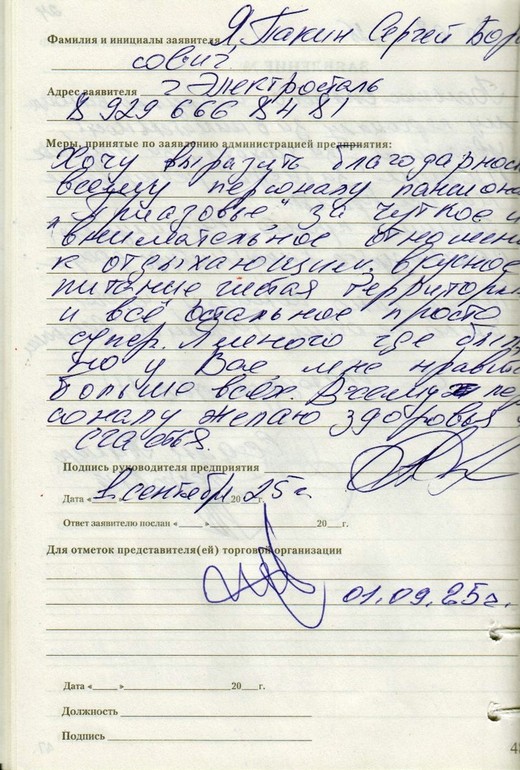 Фамилия и инициалы заявителя Я, Пакин Сергей Бори
сович,
Адрес заявителя г Электросталь
8 929 666 84 81
Меры, принятые по заявлению администрацией предприятия:
Хочу выразить благодарнос
всему персоналу пансиона
"Приазовье" за чуткое и
внимательное отношени
к отдыхающим, вкусное
питание чистая территори
и всё остальное просто
супер. Я много где был,
но у Вас, мне нравит
больше всех. Всему пер
соналу желаю здоровья
счастья.
Подпись руководителя предприятия
Дата « 1 » сентябр 20 25 г.
Ответ заявителю послан «___» ___ 20___г.
Для отметок представителя(ей) торговой организации
01.09.25г.
Дата «___» ___ 20___г.
Должность
Подпись
48